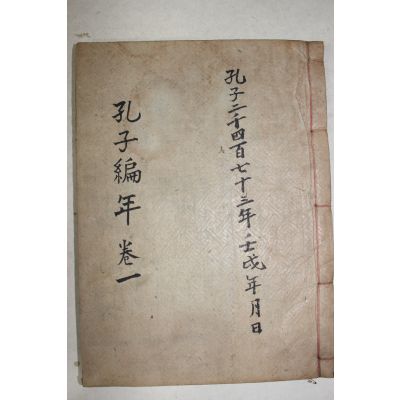 孔子二千四百七十三年壬戌年月日
孔子編年 卷一